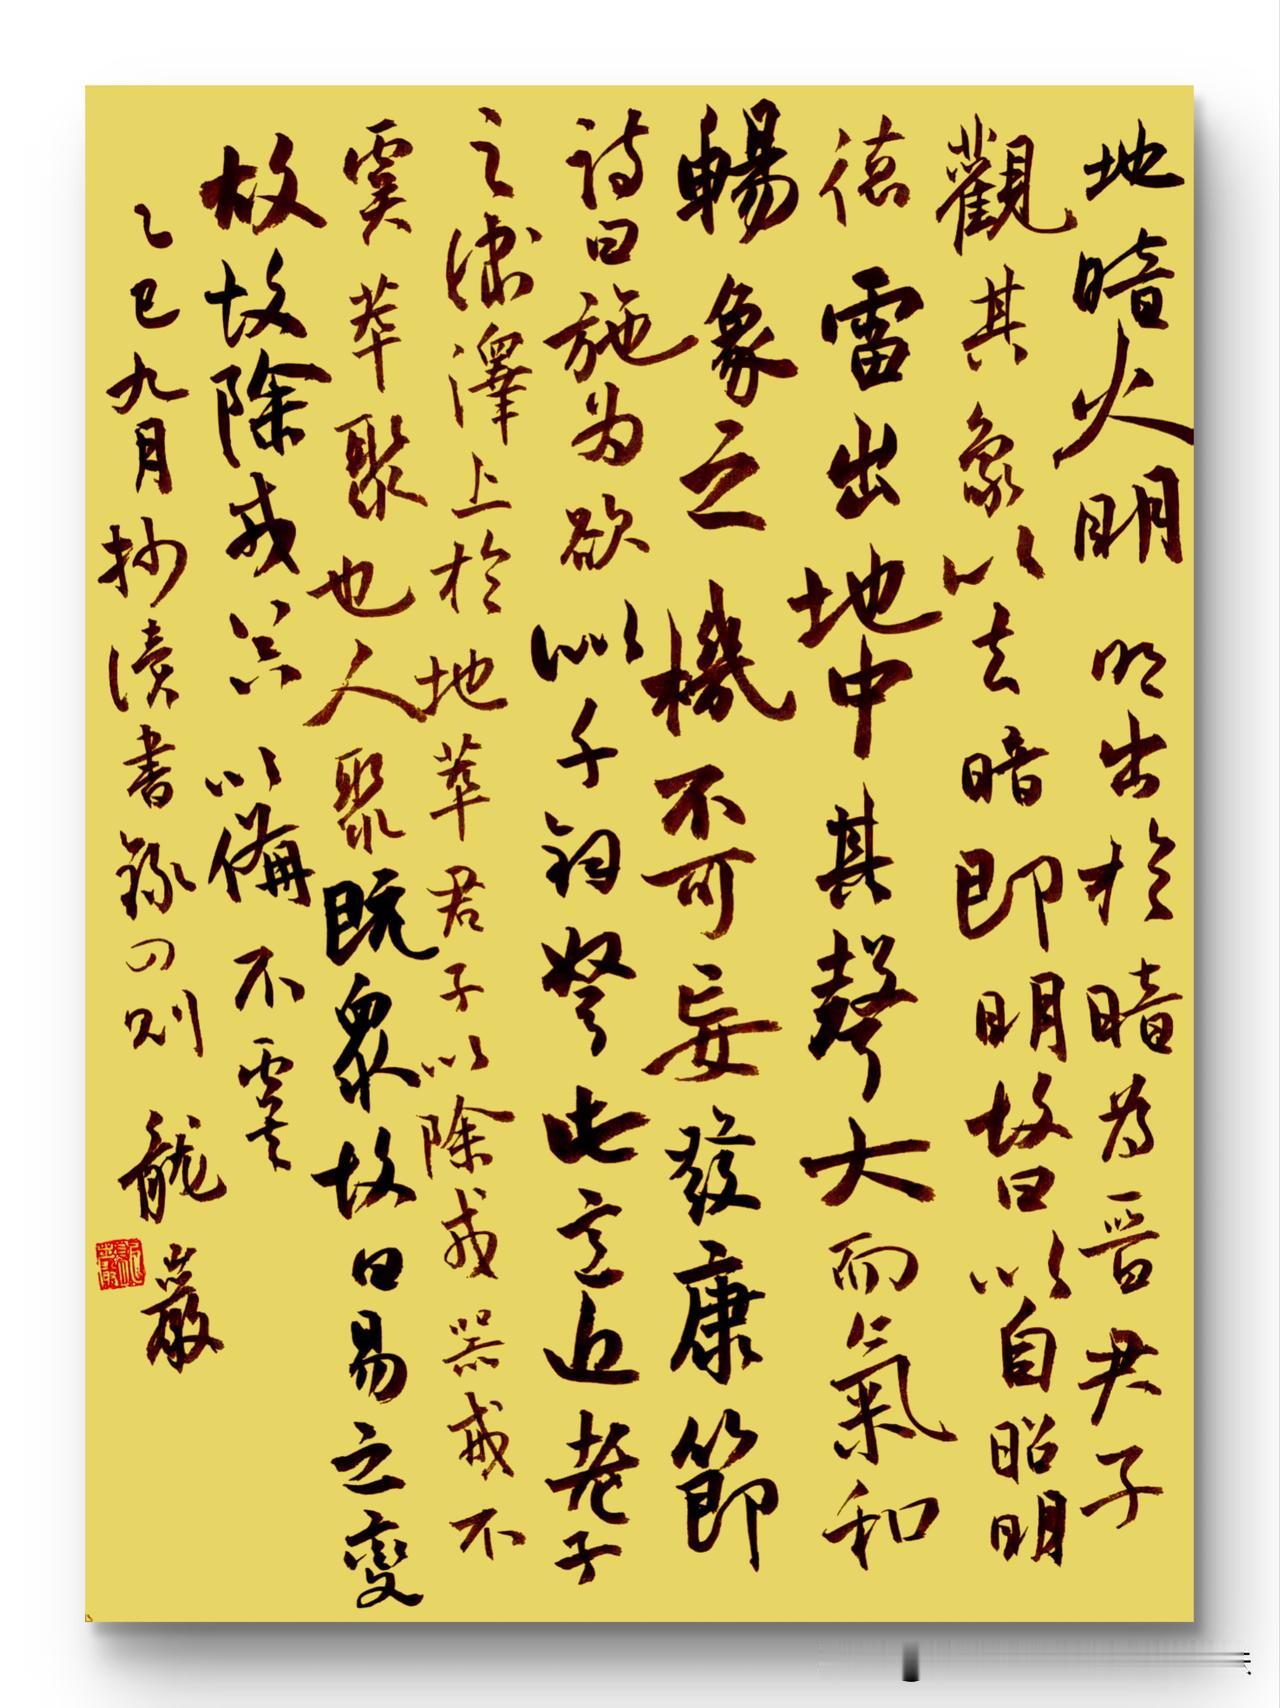 地暗火明明出於暗為晉君子
觀其象以去暗即明故曰以自昭明
德雷出地中其聲大而氣和
暢象之機不可妄發康節
詩曰施为欲似千鈞弩此意近老子
之澤上於地萃君子以除戎器戒不
虞萃聚也人聚既眾故曰易之變
故故除戎器以備不虞
乙巳九月抄讀書錄四則龍巖